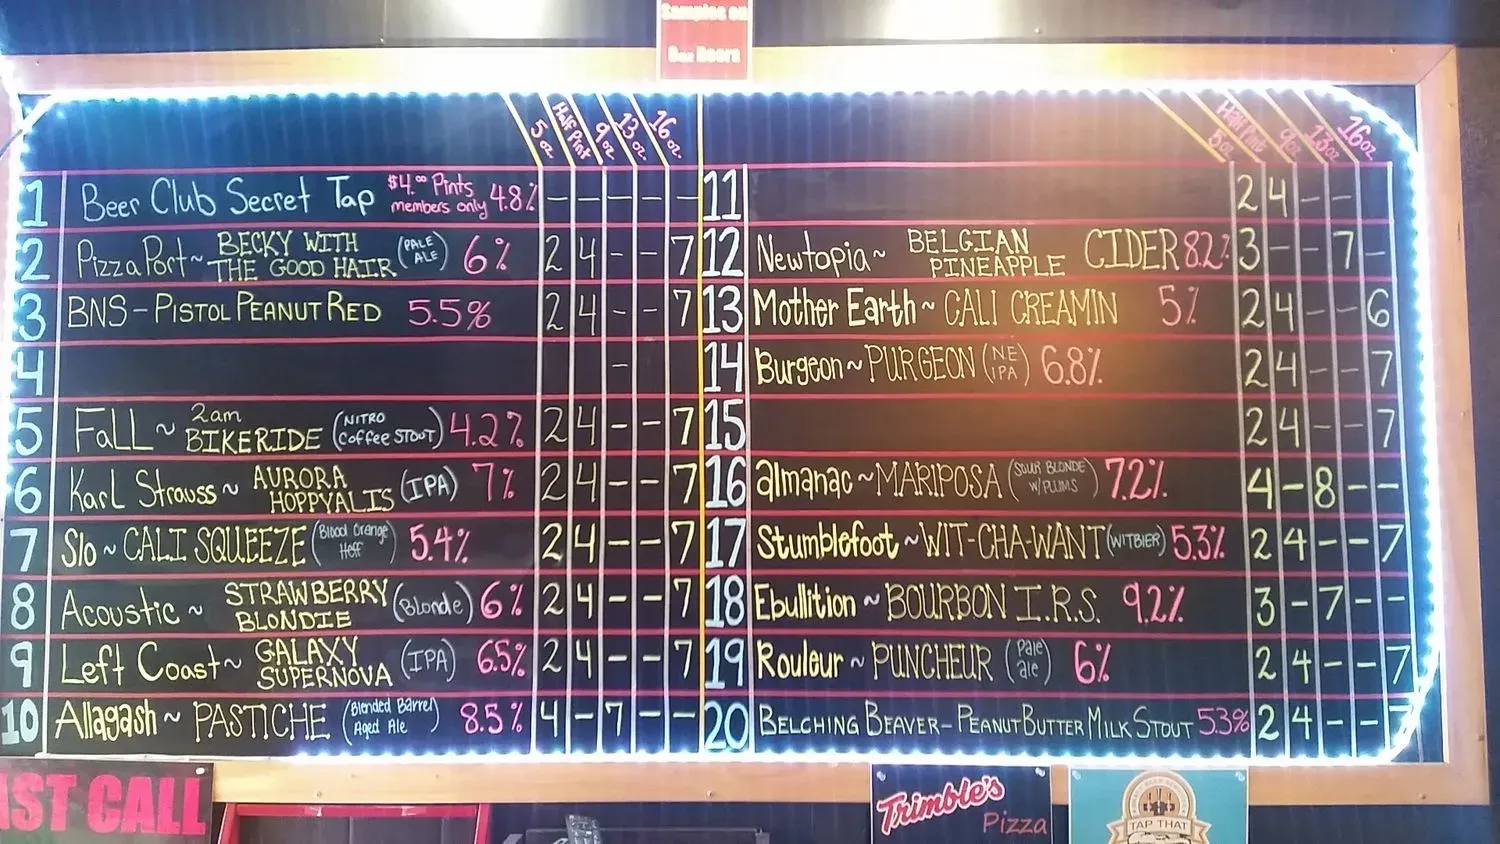 Samples on
Box Beers
5 oz Half Pint 9 oz 13 oz. 16 oz.
1 Beer Club Secret Tap $4.00 Pints members only 4.8% – – – – –
2 Pizza Port ~ BECKY WITH THE GOOD HAIR (PALE ALE) 6% 2 4 – – 7
3 BNS – PISTOL PEANUT RED 5.5% 2 4 – – 7
4 –
5 FALL ~ 2am BIKERIDE (NITRO Coffee STOUT) 4.2% 2 4 – – 7
6 Karl Strauss ~ AURORA HOPPYALIS (IPA) 7% 2 4 – – 7
7 Slo ~ CALI SQUEEZE (Blood Orange Heff) 5.4% 2 4 – – 7
8 Acoustic ~ STRAWBERRY BLONDIE (Blonde) 6% 2 4 – – 7
9 Left Coast ~ GALAXY SUPERNOVA (IPA) 6.5% 2 4 – – 7
10 Allagash ~ PASTICHE (Blended Barrel Aged Ale) 8.5% 4 – 7 – –
5 oz Half Pint 9 oz 13 oz 16 oz.
11 2 4 – –
12 Newtopia ~ BELGIAN PINEAPPLE CIDER 8.2% 3 – – 7 –
13 Mother Earth ~ CALI CREAMIN 5% 2 4 – – 6
14 Burgeon ~ PURGEON (NE IPA) 6.8% 2 4 – – 7
15 2 4 – – 7
16 almanac ~ MARIPOSA (SOUR BLONDE W/ PLUMS) 7.2% 4 – 8 – –
17 Stumblefoot ~ WIT-CHA-WANT (WITBIER) 5.3% 2 4 – – 7
18 Ebullition ~ BOURBON I.R.S. 9.2% 3 – 7 – –
19 Rouleur ~ PUNCHEUR (Pale ale) 6% 2 4 – – 7
20 BELCHING BEAVER – PEANUT BUTTER MILK STOUT 5.3% 2 4 – – 7
AST CALL
Trimble's
Pizza
TAP THAT